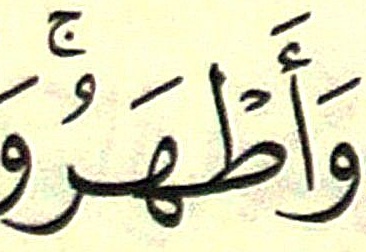 وَأَطْهَرُ ۚ وَ